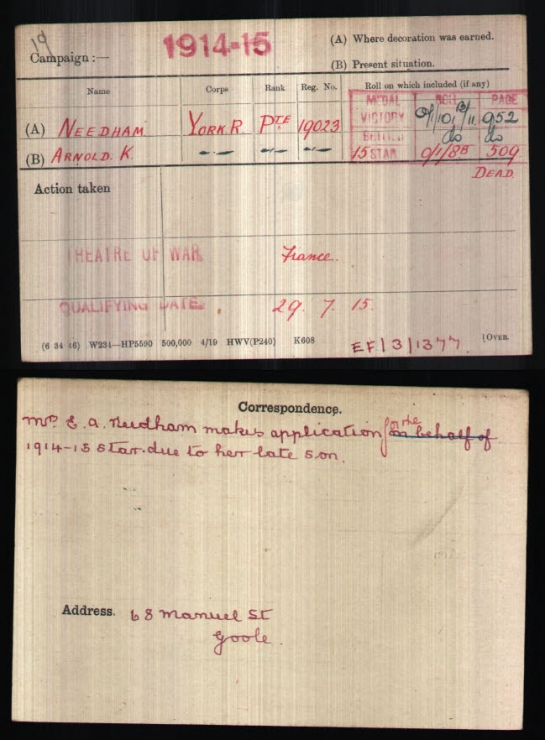 19
Campaign :— 1914-15
(A) Where decoration was earned.
(B) Present situation.
Name Corps Rank Reg. No. Roll on which included (if any)
MEDAL ROLL PAGE
(A) NEEDHAM YORK R. PTE 19023 VICTORY 952
do do
(B) ARNOLD. K. 15 STAR 0/1/8B 509
DEAD
Action taken
THEATRE OF WAR. France.
QUALIFYING DATE. 29. 7. 15.
(6 34 46) W234—HP5590 500,000 4/19 HWV(P240) K608 [OVER.
EF/3/1377
Correspondence.
Mrs E. A. Needham makes application for the on behalf of
1914-15 Star due to her late son.
Address. 68 Manuel St
Goole.